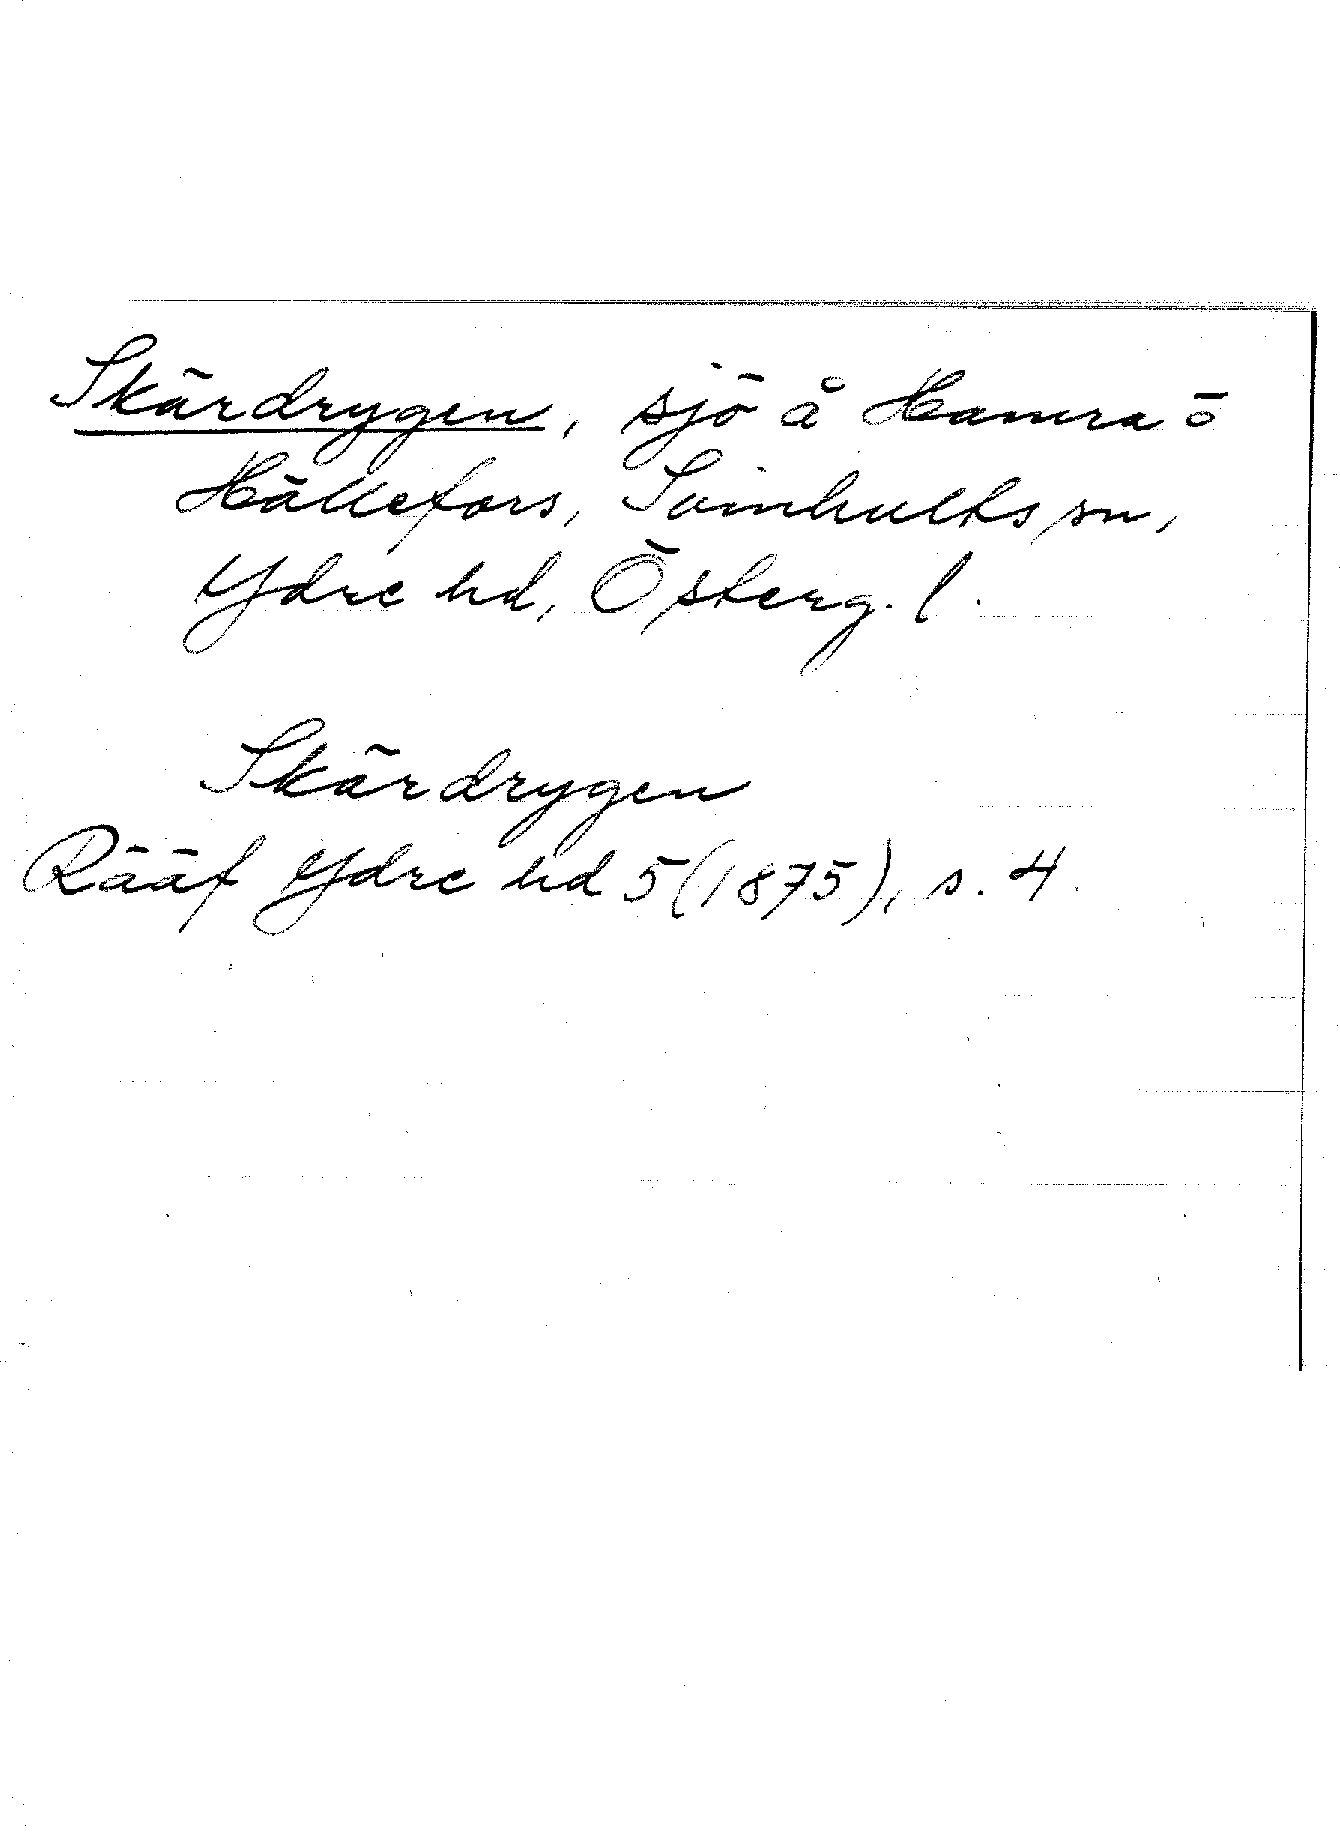 Skärdrygen, sjö å Hamra ö
Hällefors, Svinhults sn,
Ydre hd, Österg. l.
Skärdrygen
Rääf Ydre hd 5 (1875), s. 4.